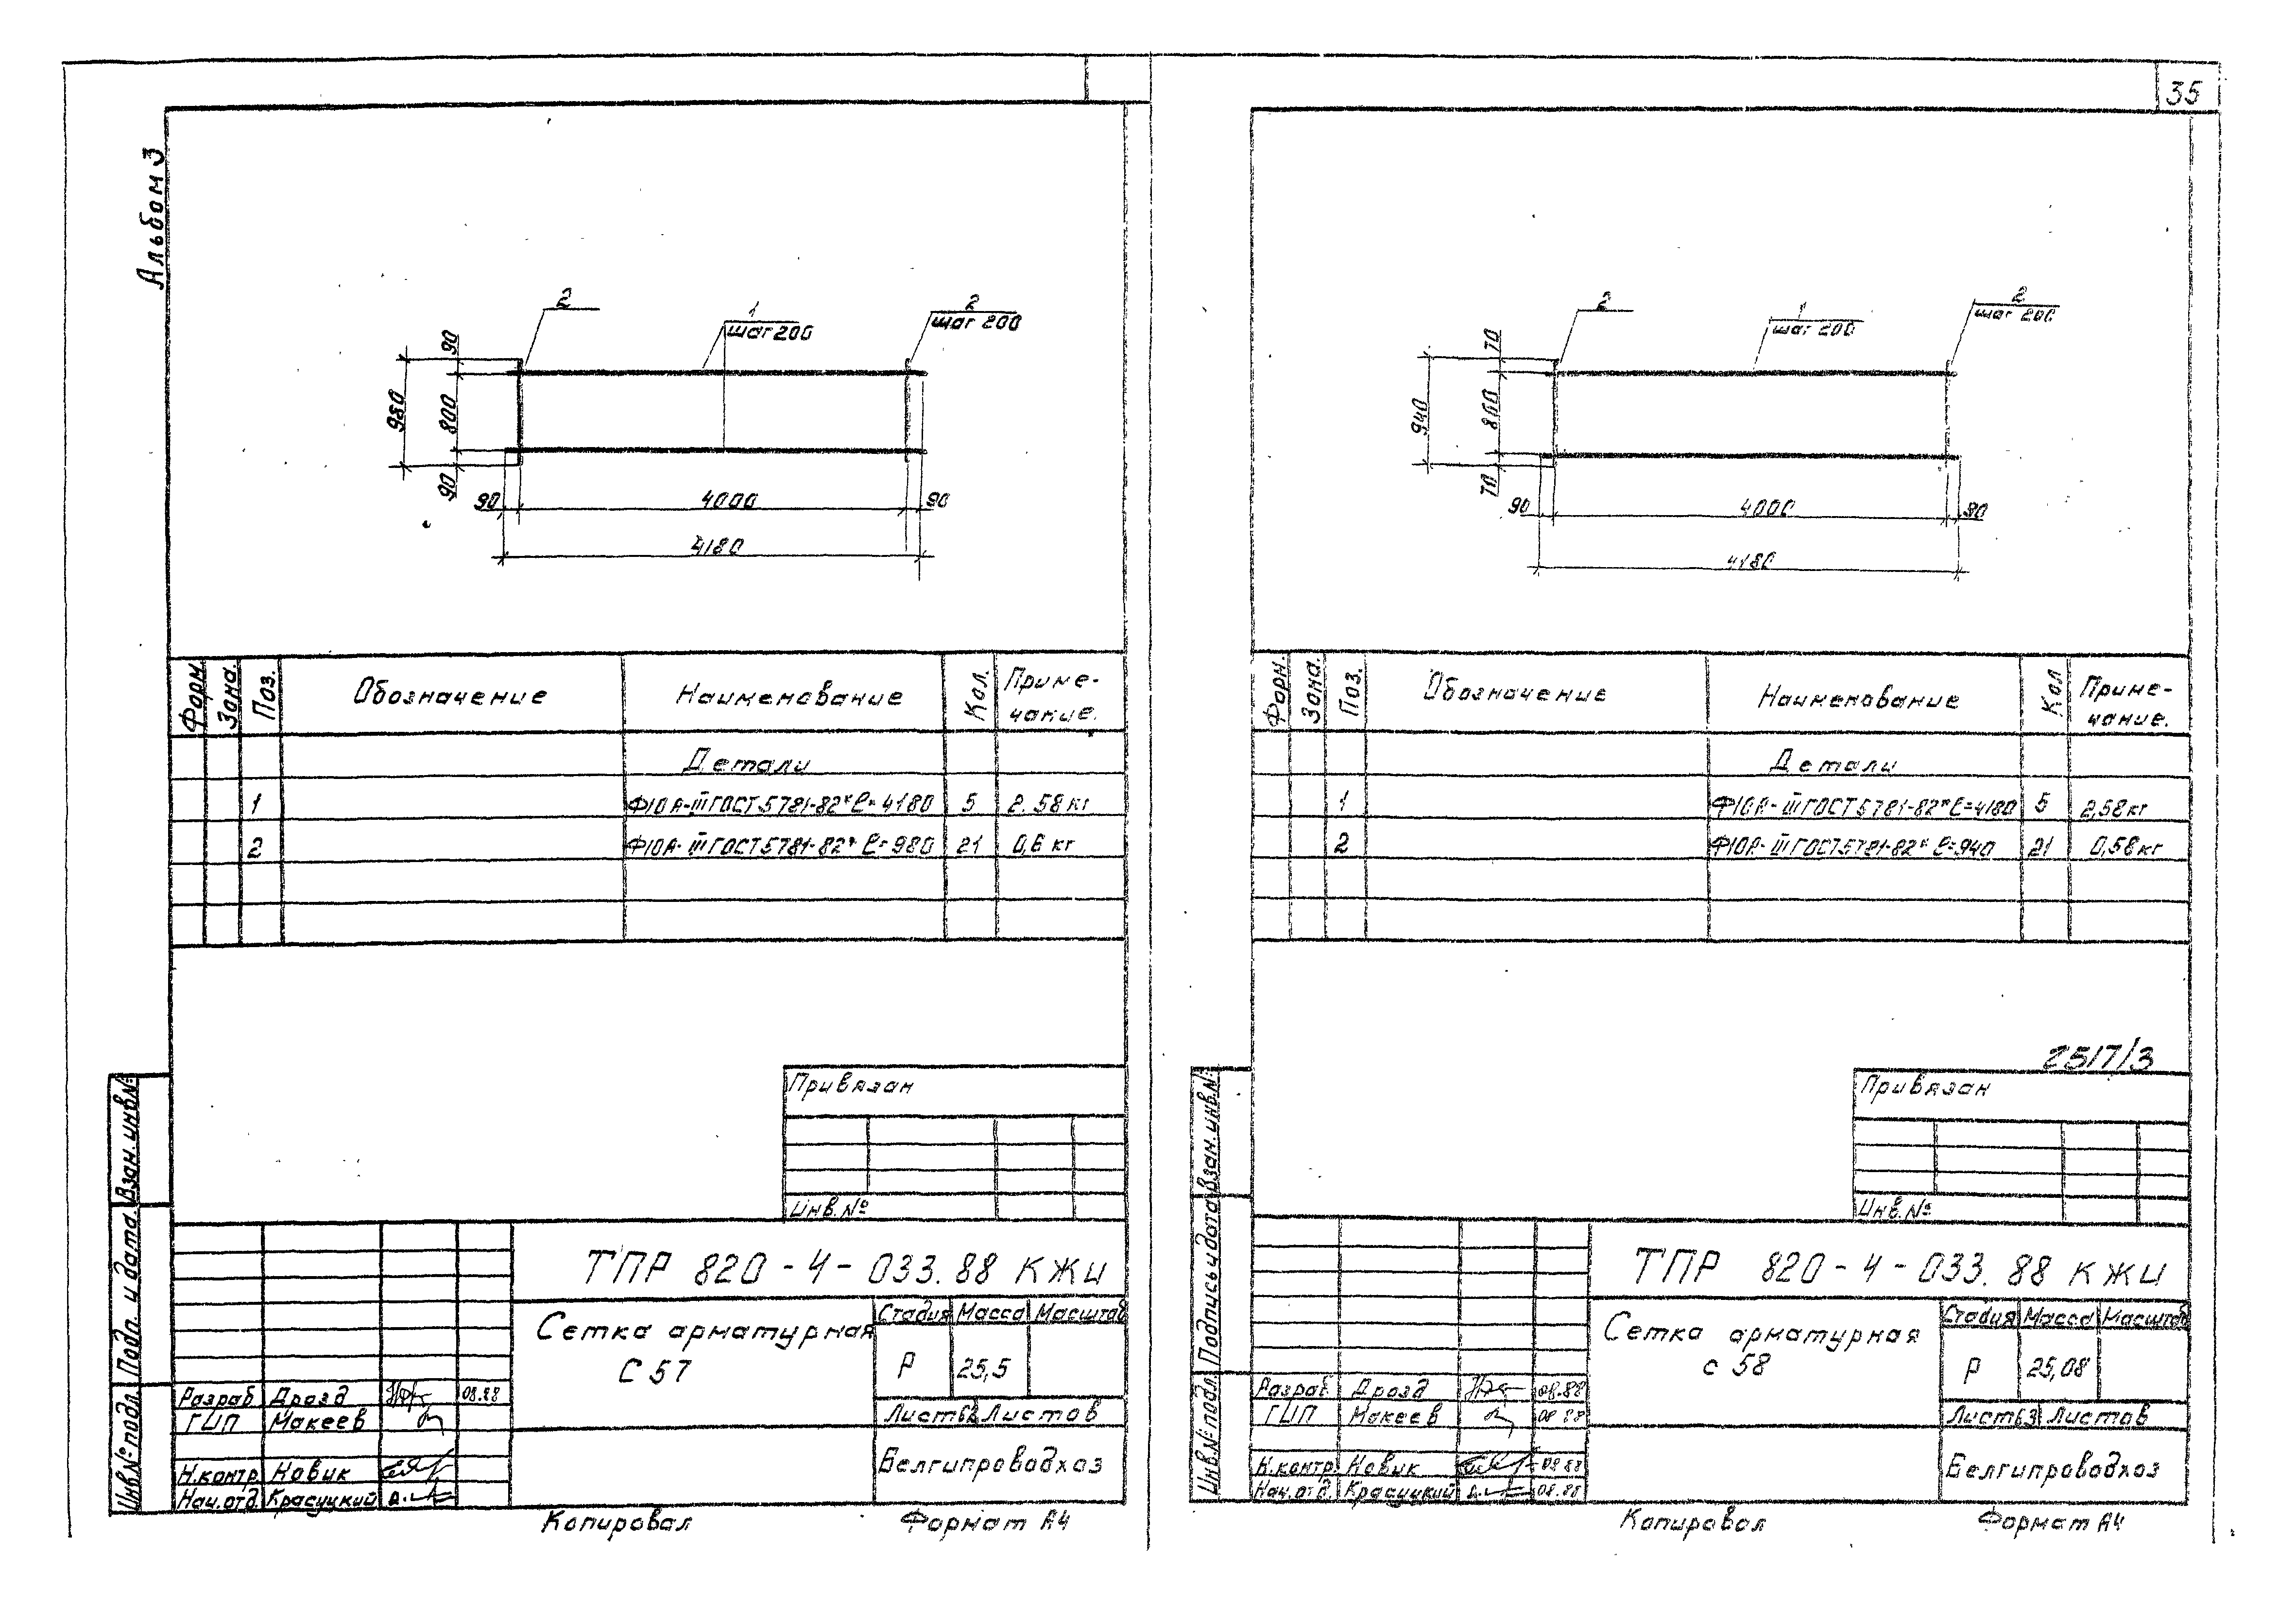 Альбом 3
2
1
шаг 200
2
шаг 200
90
980
800
90
90
4000
90
4180
Форм.
Зона.
Поз.
Обозначение
Наименование
Кол.
Приме-
чание.
Детали
1 Ф10А-III ГОСТ 5781-82* ℓ=4180 5 2.58 кг
2 Ф10А-III ГОСТ 5781-82* ℓ=980 21 0,6 кг
Привязан
Инв.№
ТПР 820-4-033.88 КЖИ
Сетка арматурная
С 57
Стадия Масса Масштаб
Р 25,5
Лист 62 Листов
Белгипроводхоз
Разраб. Дрозд 08.88
ГИП Макеев
Н.контр. Новик
Нач.отд. Красуцкий
Взам.инв.№
Подп. и дата.
Инв.№ подл.
Копировал
Формат А4
35
2
1
шаг 200
2
шаг 200
70
940
800
70
90
4000
90
4180
Форм.
Зона.
Поз.
Обозначение
Наименование
Кол
Приме-
чание.
Детали
1 Ф10А-III ГОСТ 5781-82* ℓ=4180 5 2,58 кг
2 Ф10А-III ГОСТ 5781-82* ℓ=940 21 0,58 кг
2517/3
Привязан
Инв.№
ТПР 820-4-033.88 КЖИ
Сетка арматурная
с 58
Стадия Масса Масштаб
Р 25,08
Лист 63 Листов
Белгипроводхоз
Разраб. Дрозд 08.88
ГИП Макеев 08 88
Н.контр. Новик 08 88
Нач.отд. Красуцкий 08.88
Взам.инв.№
Подпись и дата
Инв.№ подл.
Копировал
Формат А4